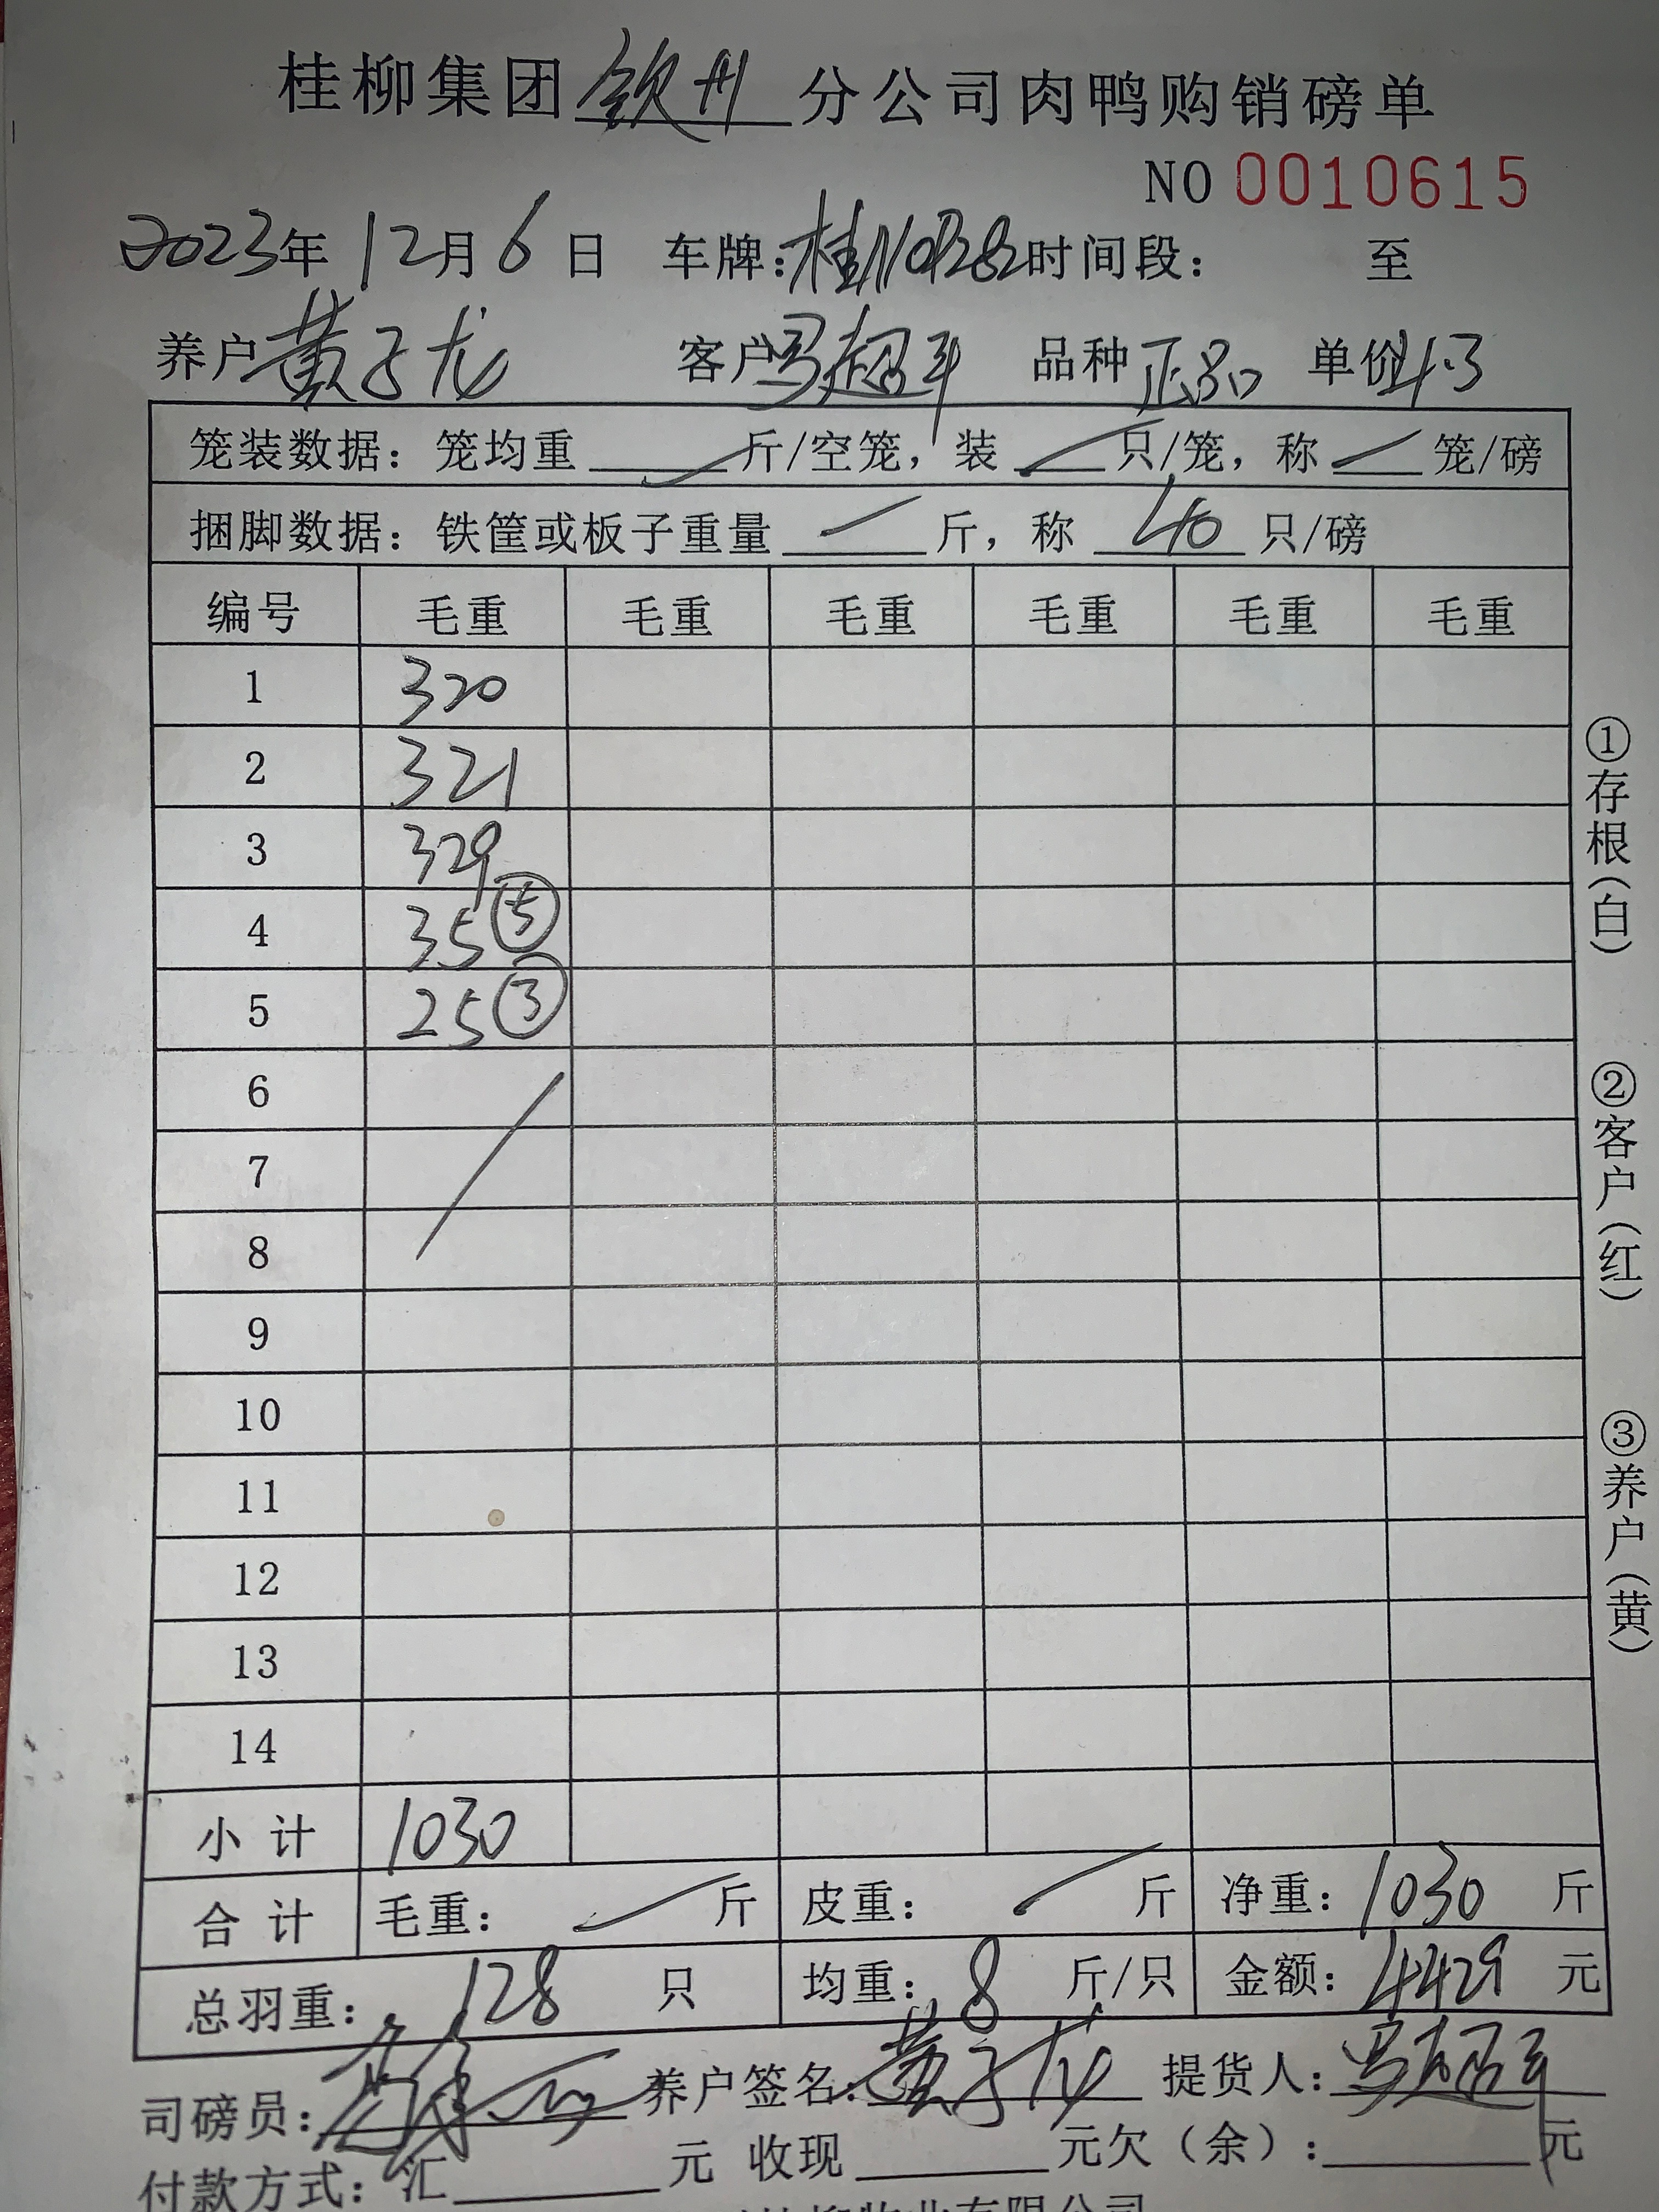 桂柳集团钦州分公司肉鸭购销磅单
NO 0010615
2023年12月6日 车牌:桂 时间段: 至
养户黄子龙 客户 品种正品 单价4.3
笼装数据:笼均重 斤/空笼,装 只/笼,称 笼/磅
捆脚数据:铁筐或板子重量 斤,称 40 只/磅
编号 毛重 毛重 毛重 毛重 毛重 毛重
1 320
2 321
3 329
4 35 ⑤
5 25 ③
6
7
8
9
10
11
12
13
14
小计 1030
合计 毛重: 斤 皮重: 斤 净重:1030 斤
总羽重:128 只 均重:8 斤/只 金额:4429 元
司磅员: 养户签名:黄子龙 提货人:
付款方式:汇 元 收现 元欠(余): 元
①存根(白)
②客户(红)
③养户(黄)